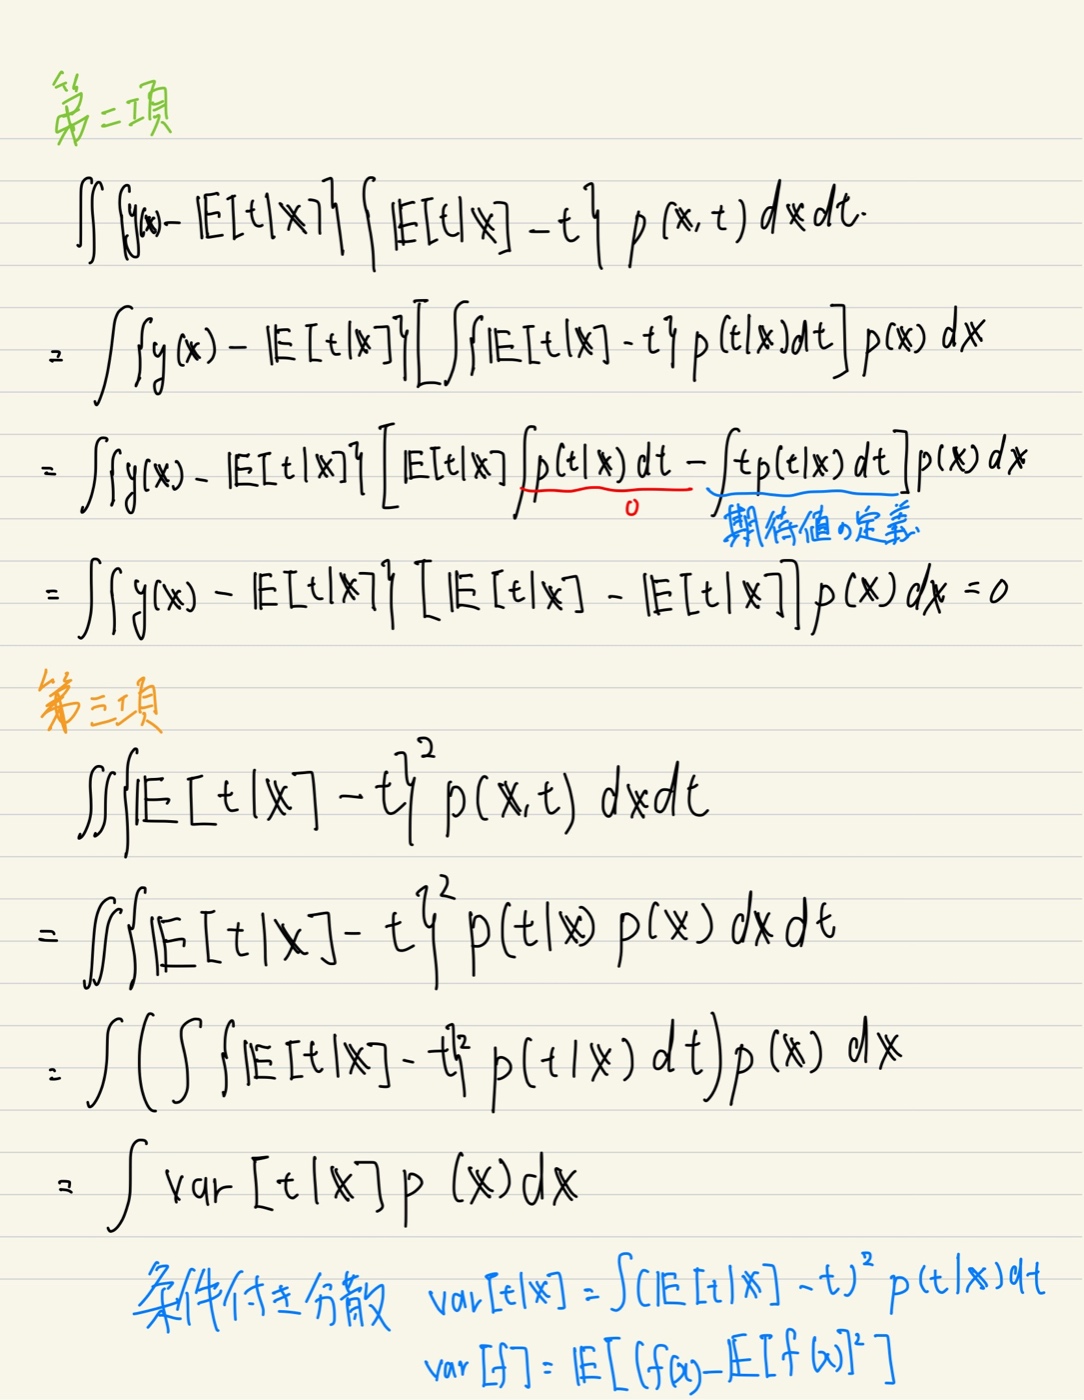 第二項
∬{y(𝕩)-𝔼[t|𝕩]}{𝔼[t|𝕩]-t} p(𝕩,t)d𝕩dt.
= ∫{y(𝕩)-𝔼[t|𝕩]}[∫{𝔼[t|𝕩]-t}p(t|𝕩)dt]p(𝕩)d𝕩
= ∫{y(𝕩)-𝔼[t|𝕩]}[𝔼[t|𝕩]∫p(t|𝕩)dt-∫tp(t|𝕩)dt]p(𝕩)d𝕩
0 期待値の定義
= ∫{y(𝕩)-𝔼[t|𝕩]}[𝔼[t|𝕩]-𝔼[t|𝕩]]p(𝕩)d𝕩=0
第三項
∬{𝔼[t|𝕩]-t}² p(𝕩,t) d𝕩dt
= ∬{𝔼[t|𝕩]-t}² p(t|𝕩) p(𝕩) d𝕩dt
= ∫(∫{𝔼[t|𝕩]-t}² p(t|𝕩)dt)p(𝕩) d𝕩
= ∫var[t|𝕩]p(𝕩)d𝕩
条件付き分散 var[t|𝕩]=∫(𝔼[t|𝕩]-t)² p(t|𝕩)dt
var[f]=𝔼[(f(x)-𝔼[f(x)]²]